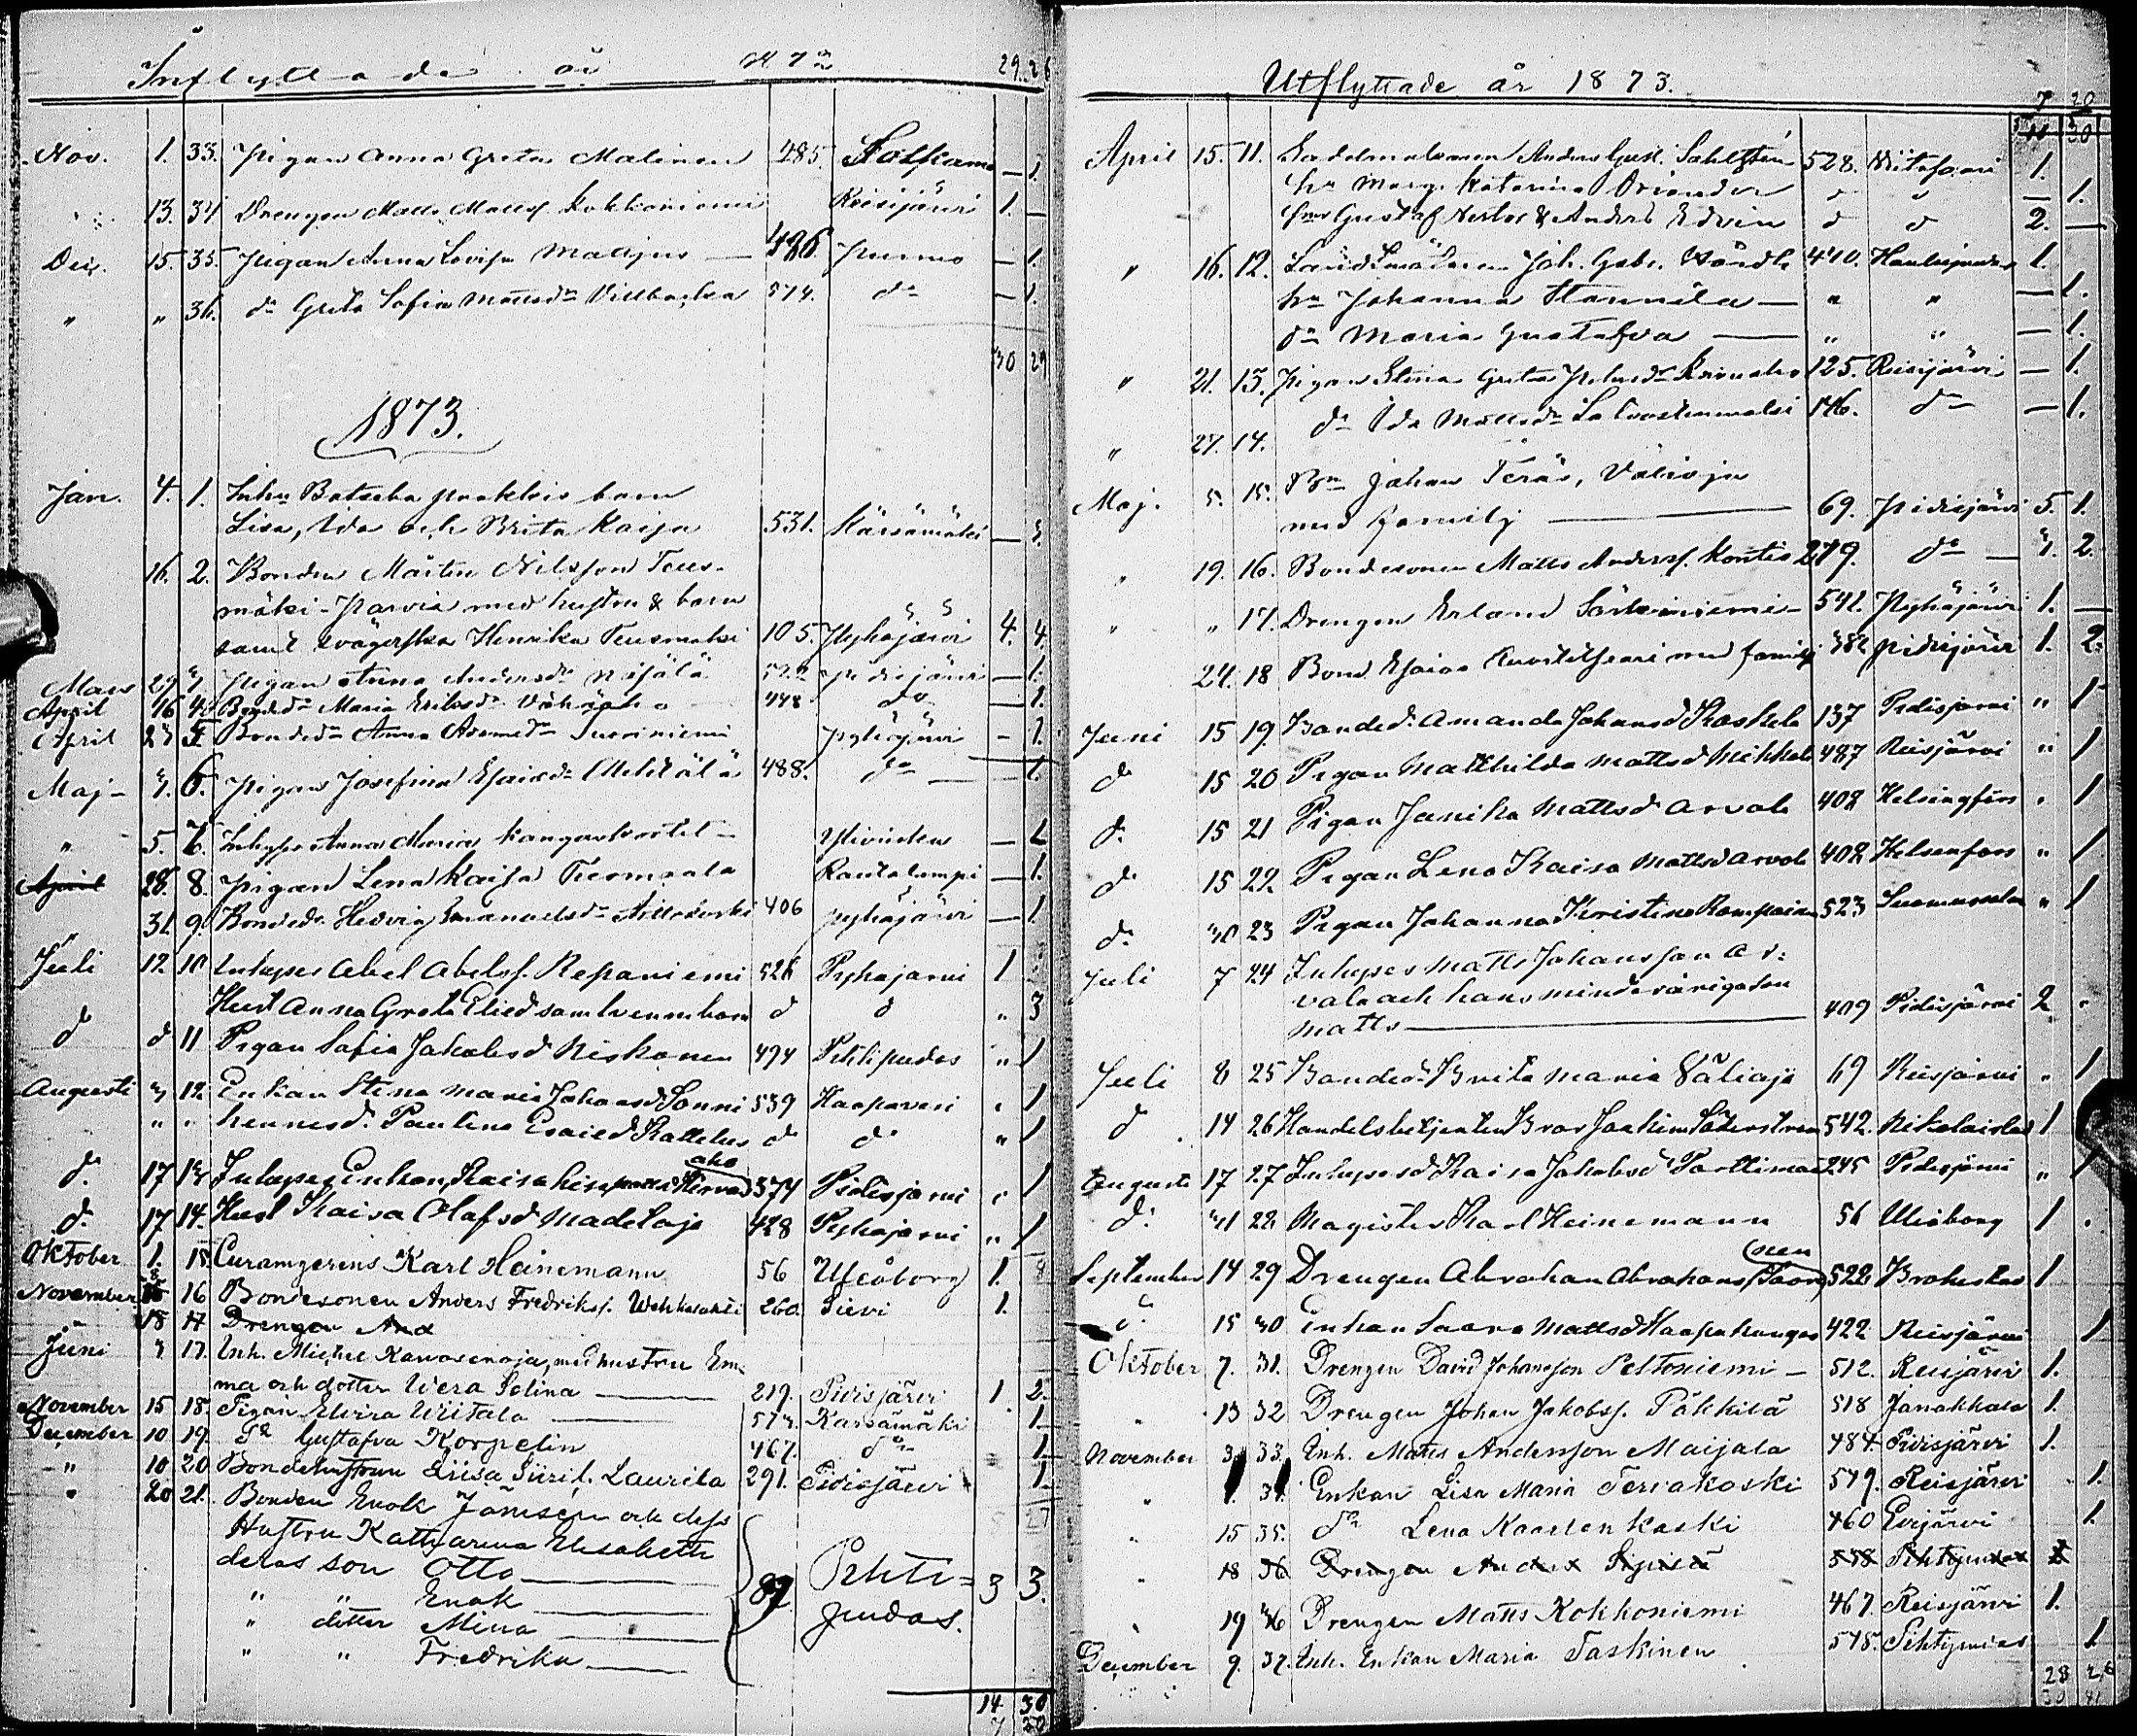 Inflyttade år 1872 29. 26
Nov. 1. 33. Pigan Anna Greta Malinen 485. Sotkamo — 1.
" 13. 34 Drengen Matts Mattsf. Kokkoniemi Reisijärvi 1. —
Dec. 15. 35. Pigan Anna Lovisa Mattsjus — 486. Purmo — 1.
" " 36. dn Greta Sofia Mattsdr Villbacka 574. do — 1.
30 29
1873.
Jan. 4. 1. Inhn Batseba barn
Lisa, Ida och Brita Kaisa 531. Kärsämäki — 3.
16. 2. Bonden Mårten Nilsson Teus-
mäki-Parvia med hustru & barn
samt svägerska Henrika Teusmäki 105. Pyhäjärvi 4. 4.
Mars 29 3 Pigan Anna Andersdr 522 Pidisjärvi — 1.
April 16 4. Bondedr Maria Eriksdr Vähäaho 448 do — 1.
April 23 5. Bondedr Anna Adamsdr Suoniniemi Pyhäjärvi - 1.
Maj - 3. 6. Pigan Josefina Esaiædr Mehtälä 488. do — 1.
" 5. 7. Inhyses Anna Maria Kangaskortet - Ylivieska — 1.
April 28. 8. Pigan Lena Kaisa Tuomaala Rautalampi — 1.
" 31. 9. Bondedr Hedvig Emanuelsdr 406 Pyhäjärvi — 1.
Juli 12 10 Inhyses Abel Abelsf. Repaniemi 526 Pyhajarvi 1
Hust Anna Greta Elied samt tvenne barn d d " 3
d d 11 Pigan Sofia Jakobsd Niskanen 494 Pihtipudas " 1
Augusti 3 12 Enkan Stina Maria Johansd Sonni 539 Haapavesi " 1
" " hennes d. Paulina Esaied Kattelus d d " 1
d. 17 13 Inhyses Enkan Kaisa Lisa Mattsd Hirvaho 374 Pidisjarvi " 1
d. 17 14. Hust Kaisa Olafsd Madetoja 428 Pyhajarvi " 1
Oktober 1. 15. Karl Heinemann 56 Uleåborg 1.
November 15 16 Bondesonen Anders Fredriksf. Wehkasahti 260. Sievi 1.
18 17 Drengen And
Juni 3 17. Inh. Michel Kavosenoja, med hustru Em-
ma och dotter Wera Selina — 219. Pidisjärvi 1. 2.
November 15 18. Pigan Elvira Wiitala — 573. Karsämäki 1.
December 10 19. dn Gustafva Korpelin 467. do 1.
" 10 20 Bondehustrun Liisa Siiril. Laurila 291. Pidisjärvi 1.
" 20 21. Bonden Enok Jämsén och dess
Hustru Katharina Elisabeth
deras son Otto — 89 Pihti= 3 3.
" " Enok — pudas.
" dotter Mina —
" " Fredrika —
14 30
7 20
Utflyttade år 1873.
7 20
April 15. 11. Sadelmakaren Anders Gust. Sahlstén 528. Viitasaari 1.
hn Marg. Katarina Oriander d d — 1.
sner Gustaf Nestor & Anders Edvin d d 2. —
" 16. 12. Landtmätaren Joh. Gabr. 440. Hankasalmi 1.
hn Johanna Hannila — " " — 1.
dn Maria Gustafva — " " — 1.
" 21. 13. Pigan Stina Greta 125. Reisijärvi — 1.
" 27. 14. dn Ida Mattsdr Salvostenmäki 146. do — 1.
Maj. 5. 15. Bn Johan Teräs, Välioja
med familj — 69. Pidisjärvi 5. 1.
" 19. 16. Bondesonen Matts Andersf. Kontio 279. do — 3. 2.
" " 17. Drengen Erland Särkiniemi — 541. Pyhäjärvi 1. —
24. 18 Bond Esaias med familj 382 Pidisjärvi 1. 2.
Juni 15 19. Bonded. Amanda Johansd Koskela 137 Pidisjarvi " 1
d 15 20 Pigan Mathilda Mattsd Mikkola 487 Reisjärvi " 1
d. 15 21 Pigan Janika Mattsd Arvola 408 Helsingfors " 1
d 15 22 Pigan Lena Kaisa Mattsd Arvola 408 Helsenfors " 1
d. 30 23 Pigan Johanna Kristina Kompainen 523 Suomussalmi " 1
Juli 7 24 Inhyses Matts Johansson Ar-
vola och hans minderåriga son
Matts — 409 Pidisjärvi 2 "
Juli 8 25 Bonded. Brita Maria Välioja 69 Reisjärvi " 1
d. 14 26 Handelsbetjenten Ivar Joakim Söderström 542. Nikolaistad 1
Augusti 17 27 Inhysesd Kaisa Jakobsd Parttimaa 245 Pidisjarvi " 1
d. 31 28. Magister Karl Heinemann 56 Uleåborg 1 .
September 14 29 Drengen Abraham Abrahamsf Saarinen 522 Brahestad 1
d. 15 30 Enkan Saara Mattsd Haapakangas 422 Reisjärvi 1
Oktober 7. 31. Drengen David Johansson Peltoniemi — 512. Reisjärvi 1.
" 13 32 Drengen Johan Jakobsf. Päkkilä 518 Janakkala 1.
November 3. 33. Inh. Matts Andersson Maijala 484. Pidisjärvi 1.
" 1. 34. Enkan Lisa Maria Tervakoski 549. Reisjärvi 1.
" 15 35. dn Lena Kaartenkoski 460 Evijärvi 1.
" 18 36 Drengen Anders Sipilä 558 Pihtipudas 1
" 19 36 Drengen Matts Kokkoniemi 467. Reisjärvi 1.
December 9. 37. Inh. Enkan Maria Taskinen 548. Pihtipudas 1
28 26